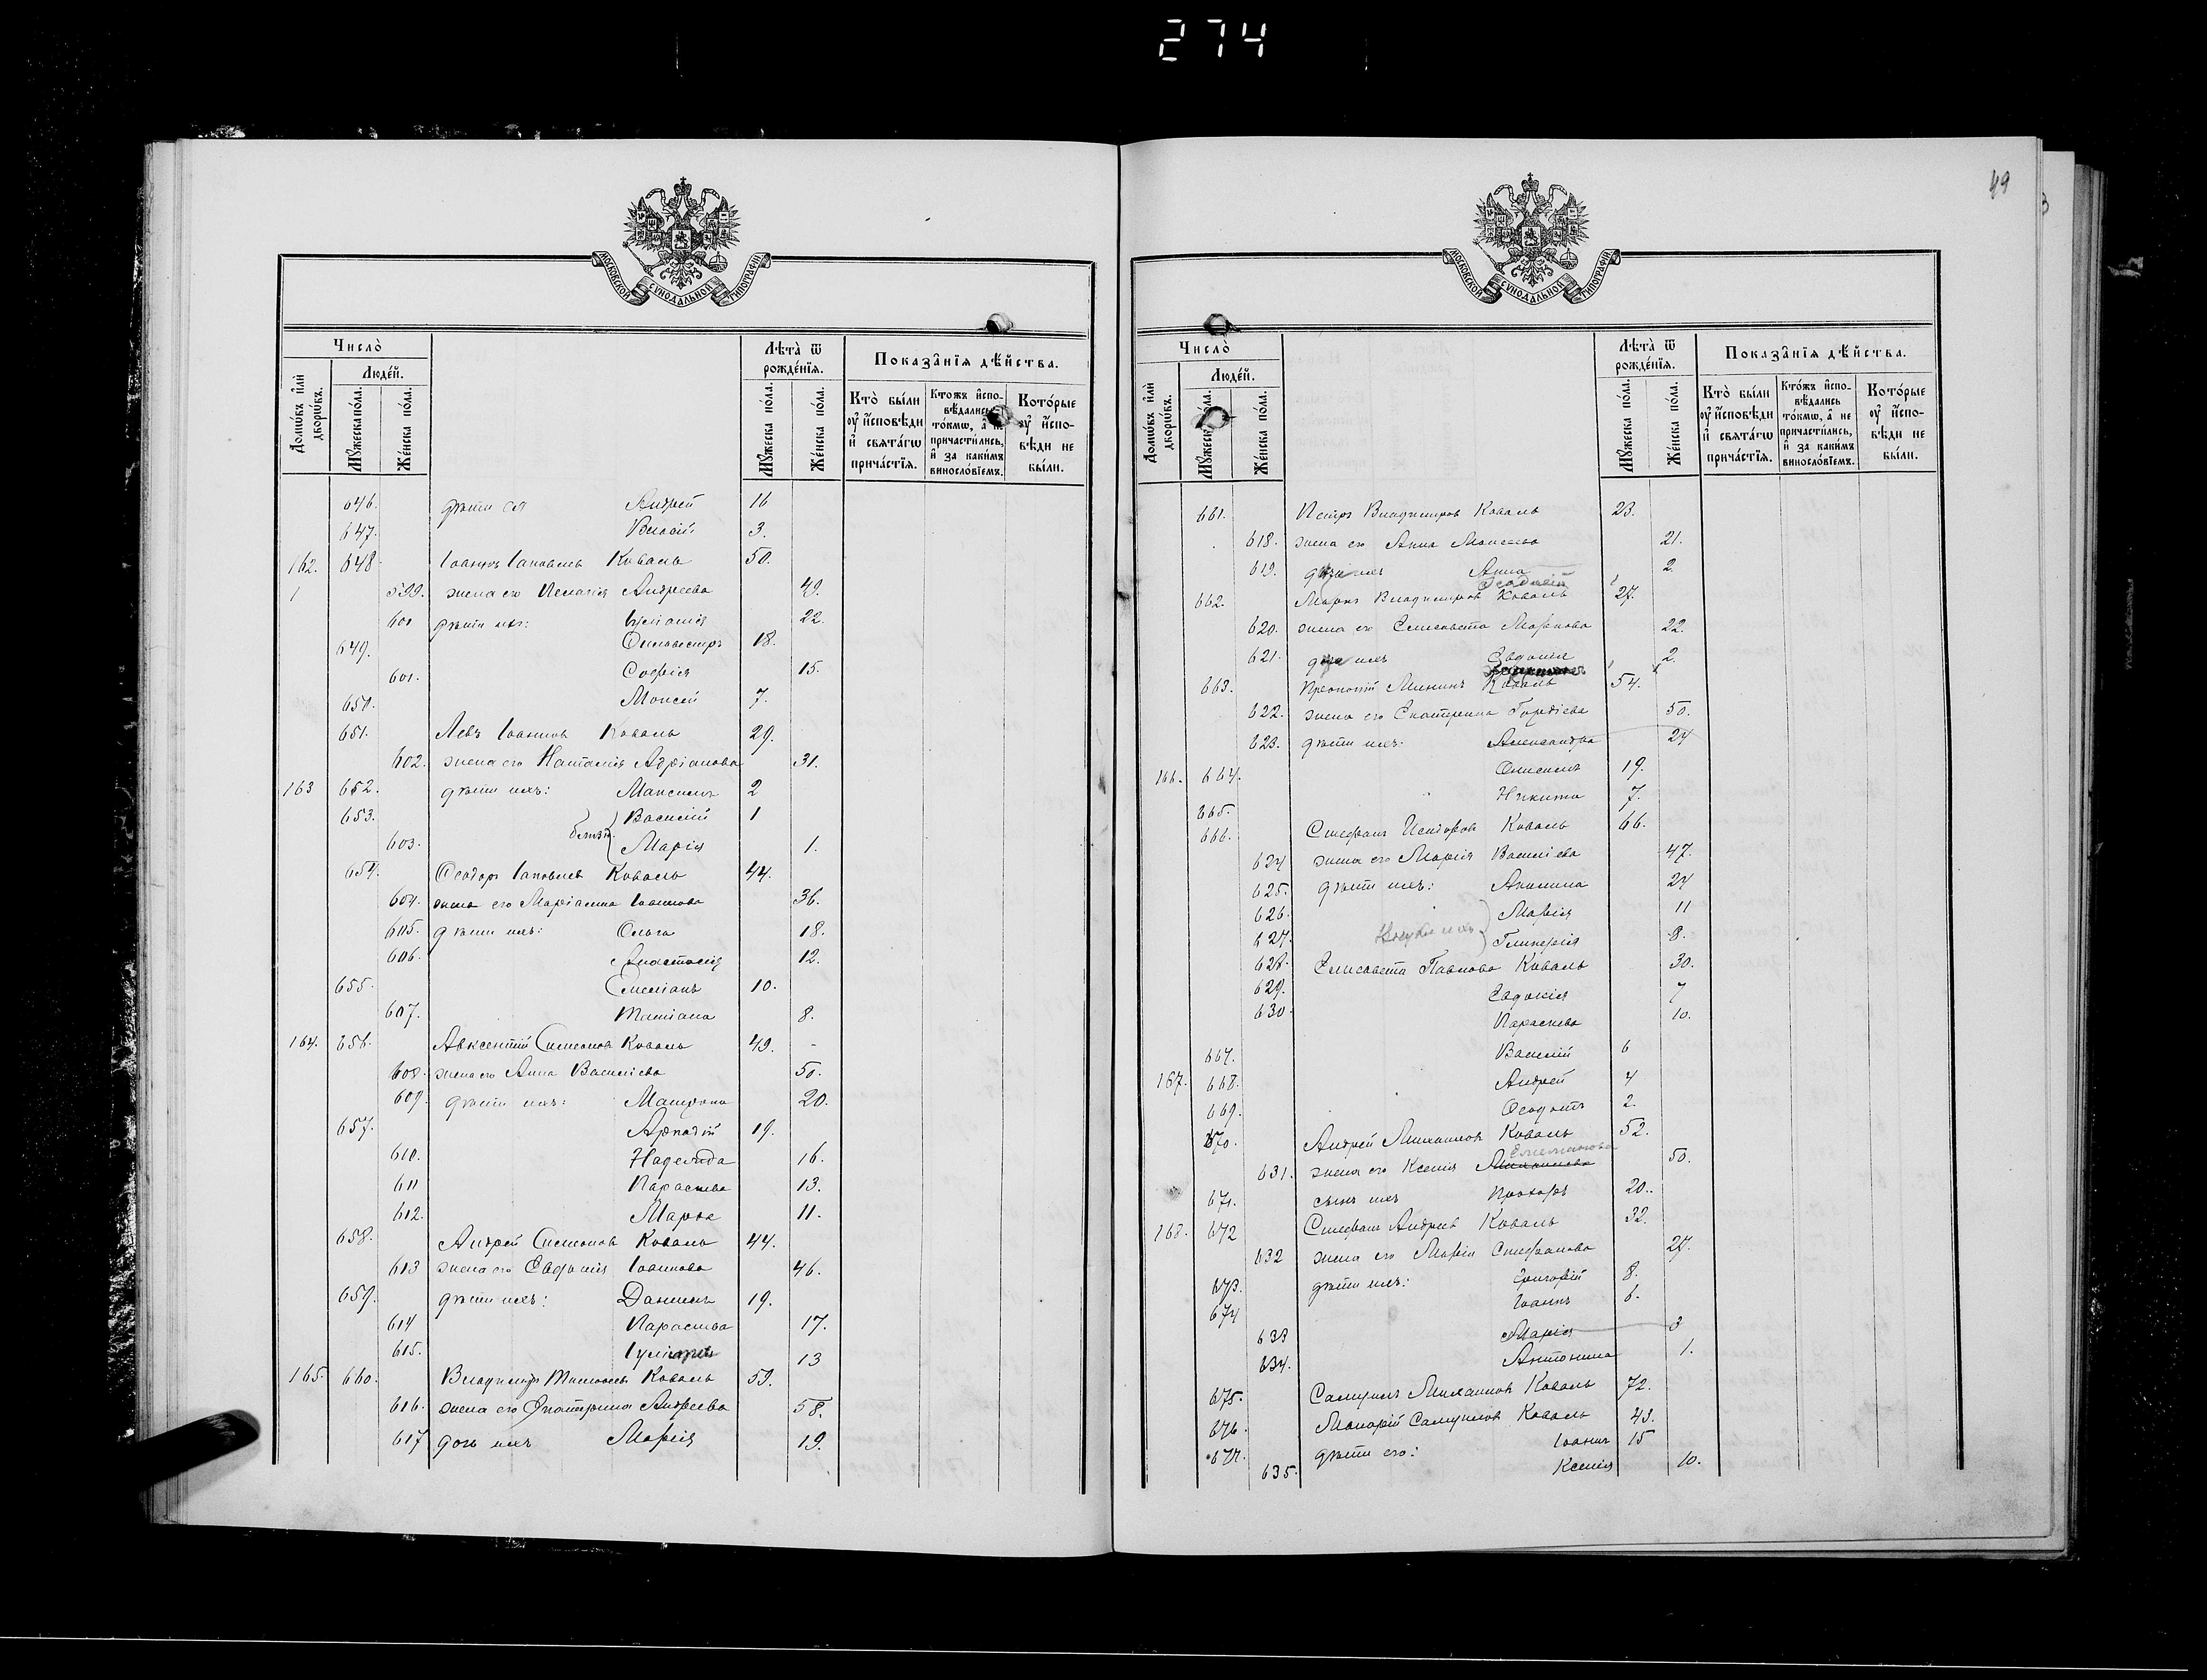 274
49
МОСКОВСКОЙ СѴНОДАЛЬНОЙ ТИПОГРАФІИ
Число̀
Людéй.
Домѡ́въ и҆лѝ дворѡ́въ.
Мꙋ́жеска по́ла.
Же́нска по́ла.
Лѣ́та ѿ рожде́нїѧ.
Мꙋ́жеска по́ла.
Же́нска по́ла.
Показа̑нїѧ дѣ́йства.
Кто̀ бы́ли ᲂу҆ и҆́сповѣди и҆ свѧта́гѡ прича́стїѧ.
Кто́жъ и҆спо-вѣ́дались то́кмѡ, а҆ не причасти́лись, и҆ за каки́мъ винослóвїемъ.
Кото́рые ᲂу҆ и҆́спо-вѣди не бы́ли.
646. дѣти ея Андрей 16
647. Власій 3.
162. 648 Іоаннъ Іаковлевъ Коваль 50.
599. жена его Пелагія Андреева 49.
600 дѣти ихъ: 22.
649. Сильвестръ 18.
601. Софія 15.
650. Моисей 7.
651. Левъ Іоанновъ Коваль 29.
602. жена его Наталія Адріанова 31.
163 652. дѣти ихъ: Максимъ 2
653. Василій 1
603. близн. Марія 1.
654. Ѳеодоръ Іаковлевъ Коваль 44.
604. жена его Маріанна Іоаннова 36.
605. дѣти ихъ: Ольга 18.
606. Анастасія 12.
655. Емеліанъ 10.
607. Татіана 8.
164. 656. Авксентій Симеоновъ Коваль 49.
608. жена его Анна Василіева 50.
609. дѣти ихъ: Матрона 20.
657. Аркадій 19.
610. Надежда 16.
611 Параскева 13.
612. Марѳа 11.
658. Андрей Симеоновъ Коваль 44.
613 жена его Евдокія Іоаннова 46.
659. дѣти ихъ: Даніилъ 19.
614 Параскева 17.
615. 13
165. 660. Владиміръ Коваль 59.
616. жена его Екатерина Андреева 58.
617 дочь ихъ Марія 19.
Число̀
Людéй.
Домѡ́въ и҆лѝ дворѡ́въ.
Мꙋ́жеска по́ла.
Же́нска по́ла.
Лѣ́та ѿ рожде́нїѧ.
Мꙋ́жеска по́ла.
Же́нска по́ла.
Показа̑нїѧ дѣ́йства.
Кто̀ бы́ли ᲂу҆ и҆́сповѣди и҆ свѧта́гѡ прича́стїѧ.
Кто́жъ и҆спо-вѣ́дались то́кмѡ, а҆ не причасти́лись, и҆ за каки́мъ винослóвїемъ.
Кото́рые ᲂу҆ и҆́спо-вѣди не бы́ли.
661. Петръ Владиміровъ Коваль 23.
618. жена его Анна 21.
619. ихъ Анна 2.
662. Маркъ Владиміровъ Коваль 27.
620. жена его Елисавета Маркова 22.
621. ихъ Евдокія 2.
663. Прокопій Мининъ Коваль 54.
622. жена его Екатерина Гордіева 50.
623. дѣти ихъ: Александра 24
166. 664. Онисимъ 19.
665. Никита 7.
666. Стефанъ Исидоровъ Коваль 66.
624 жена его Марія Василіева 47.
625. дѣти ихъ: Акилина 24
626. Марія 11
627. Гликерія 8.
628. Елисавета Павлова Коваль 30.
629. Евдокія 7
630. Параскева 10.
667. Василій 6
167. 668. Андрей 4
669. Ѳеодотъ 2.
670. Андрей Михаиловъ Коваль 52.
631. жена его Ксенія 50.
671. сынъ ихъ Прохоръ 20.
168. 672 Стефанъ Андреевъ Коваль 32.
632 жена его Марія Стефанова 27.
673. дѣти ихъ: Григорій 8.
674 Іоаннъ 6.
633 Марія 3
634. Антонина 1.
675. Самуилъ Михаиловъ Коваль 72.
676. Макарій Самуиловъ Коваль 43.
677. дѣти его: Іоаннъ 15
635. Ксенія 10.